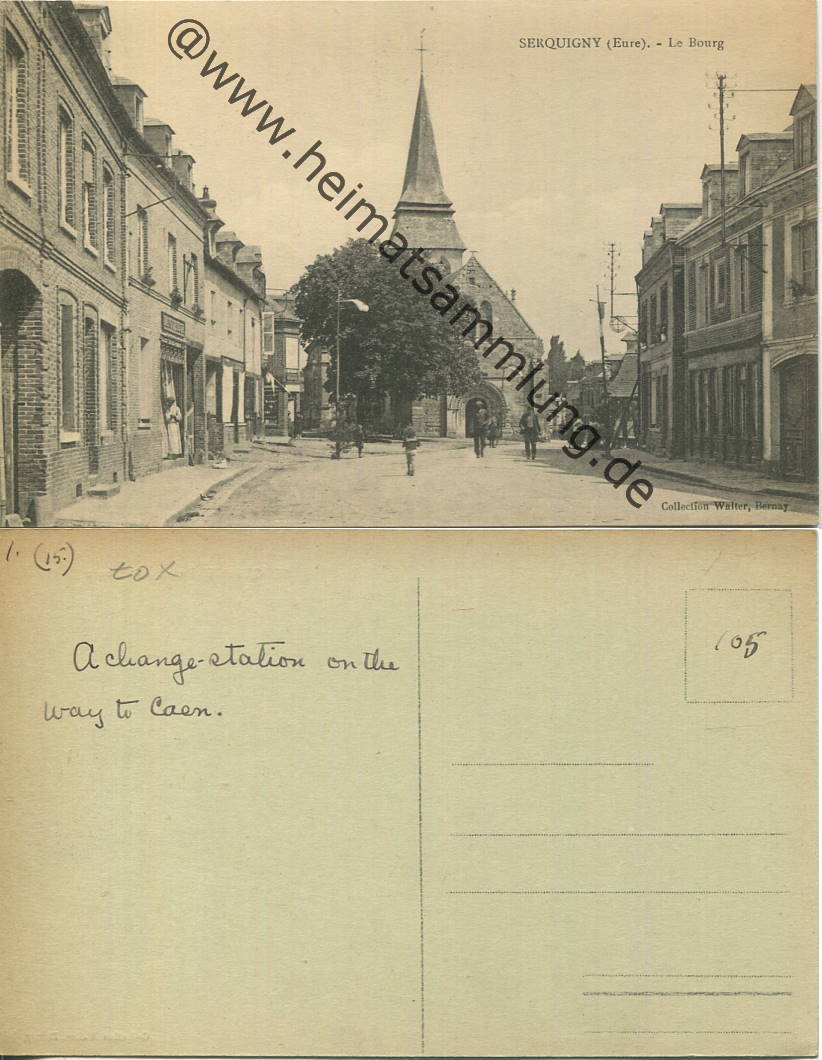 SERQUIGNY (Eure). - Le Bourg
@www.heimatsammlung.de
Collection Walter, Bernay
1. (15.)
tox
105
A change-station on the
way to Caen.